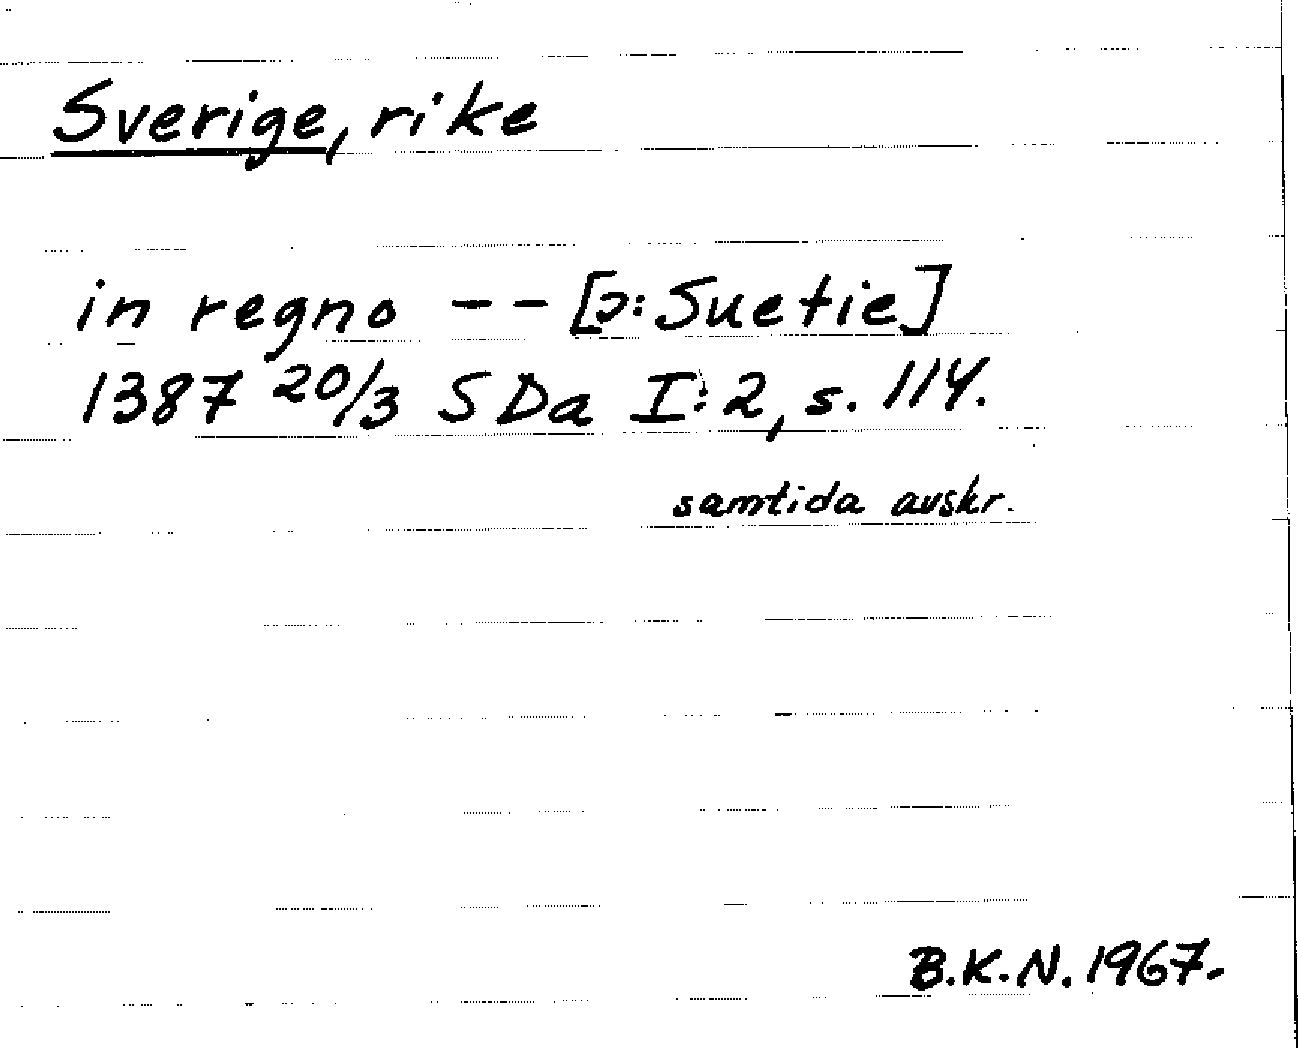 Sverige, rike
in regno -- [ɔ: Suetie]
1387 20/3 SDa I:2, s. 114.
samtida avskr.
B.K.N. 1967.